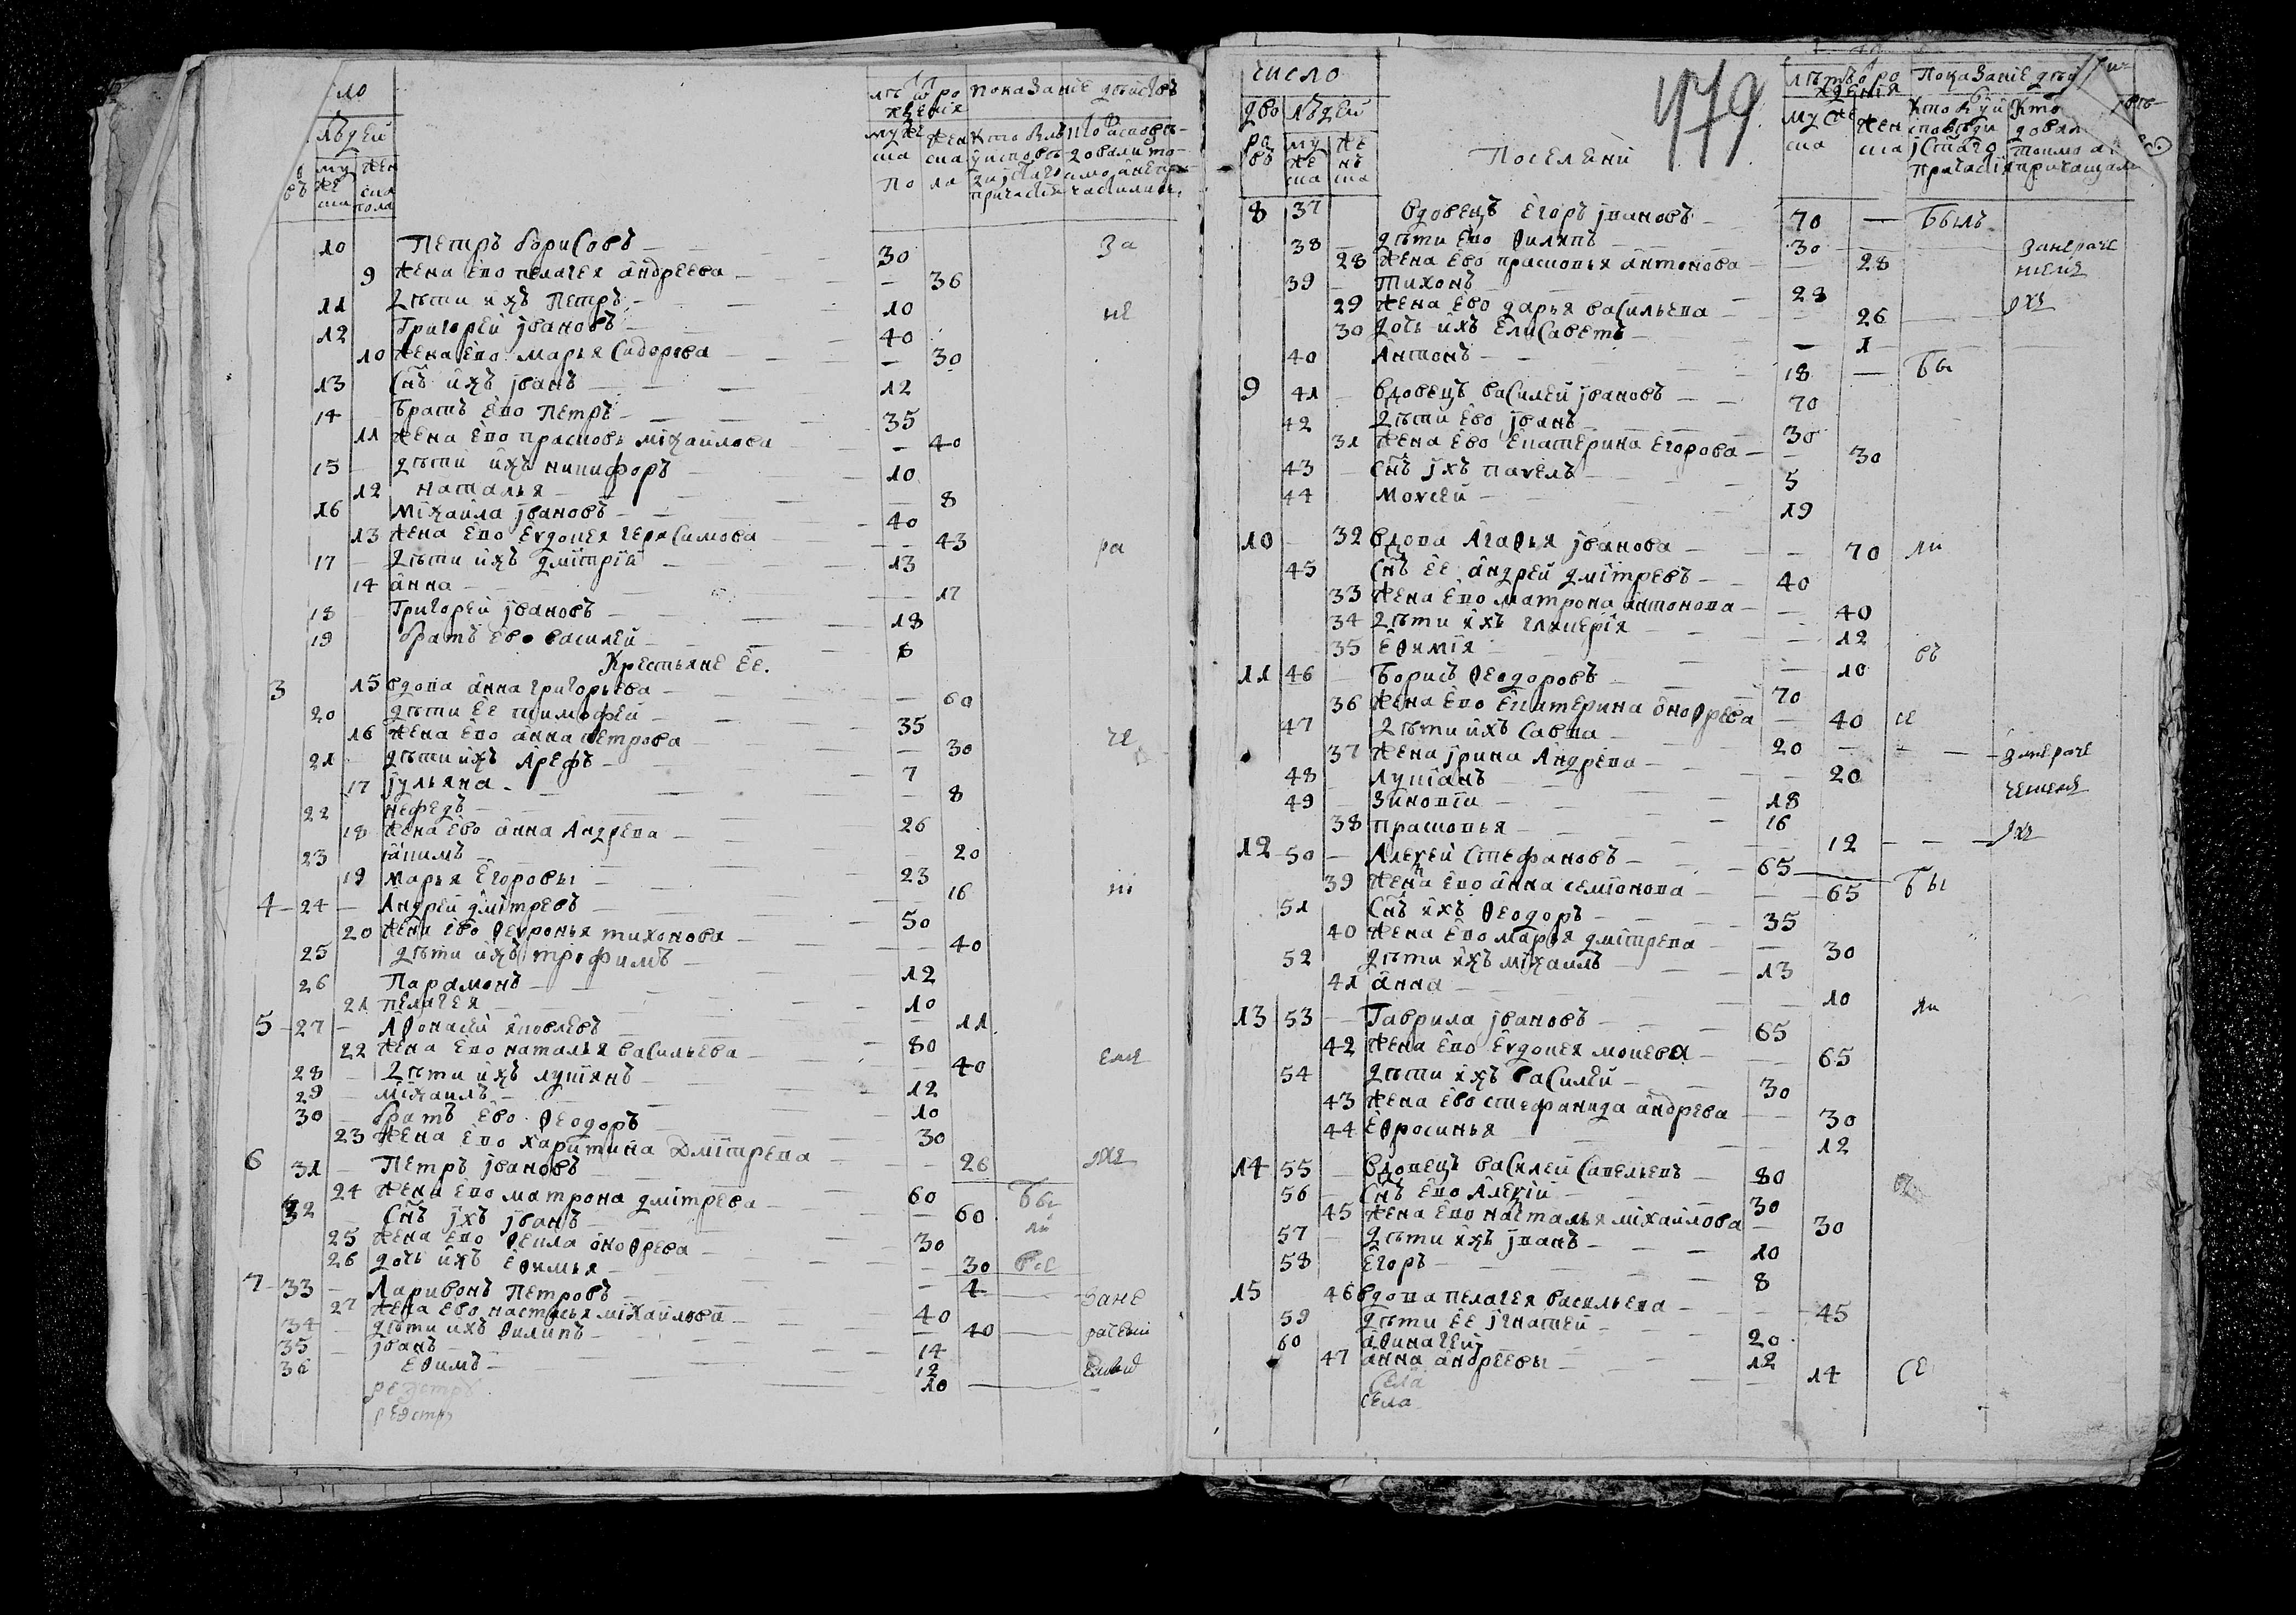 ло
людей
муже
ска
жен
ска
пола
лѣтъ ѿ ро
жденія
муже
ска
жен
ска
по ла
показаніе дѣйствъ
10 Петръ борисовъ 30 За
9 жена ево пелагея андреева 36
11 дѣти ихъ Петръ 10 не
12 Григорей јвановъ 40
10 жена ево марья Сидорова 30
13 Снъ ихъ јванъ 12
14 братъ ево Петръ 35
11 жена ево прасковь міхайлова 40
15 дѣти ихъ никифоръ 10
12 наталья 8
16 міхайла јвановъ 40
13 жена ево Еѵдокея герасимова 43 ра
17 дѣти ихъ дмітрій 13
14 анна 17
18 Григорей јвановъ 18
19 братъ ево василей 8
Крестьяне Ее.
3 15 вдова анна григорьева 60
20 дѣти Ее тимофей 35
16 жена ево анна петрова 30 че
21 дѣти ихъ Арефъ 7
17 јульяна 8
22 нефедъ 26
18 жена ево анна Андрева 20
23 акимъ 23
19 марья Егоровы 16 ні
4 24 Андрей дмітревъ 50
20 жена ево Ѳеѵронья тихонова 40
25 дѣти ихъ трофимъ 12
26 Парамонъ 10
21 пелагея 11
5 27 Аѳонасей яковлевъ 80
22 жена ево наталья васильева 40 емъ
28 дѣти ихъ лукіянъ 12
29 міхаилъ 10
30 братъ ево Ѳеодоръ 30
23 жена ево харитина Дмітрева 26
6 31 Петръ јвановъ 60 Бы
24 жена ево матрона дмітрева 60 ли
32 Снъ јхъ јванъ 30
25 жена ево Ѳекла оноѳрева 30 Все
26 дочь ихъ Еѳимья 4
7 33 Ларивонъ Петровъ 40 Зане
27 жена ево настасья міхайлова 40 рачені
34 дѣти ихъ Ѳилипъ 14
35 јванъ 12
36 Еѳимъ 10
число
дво
ро
въ
людей
му
же
ска
же
нъ
ска
Поселяни
479
лѣтъ ѿ ро
жденія
муже
ска
жен
ска
Показаніе дѣй
8 37 Вдовецъ Егоръ јвановъ 70 Былъ
38 дѣти ево Ѳилипъ 30 Занераче
28 жена ево прасковья антонова 28
39 Тихонъ 28
29 жена ево дарья васильева 26
30 дочь ихъ Елисаветъ 1
40 Антонъ 18 Бы
9 41 вдовецъ василей јвановъ 70
42 дѣти ево јванъ 30
31 жена ево Екатерина Егорова 30
43 Снъ јхъ павелъ 5
44 моѵсей 19
10 32 вдова Агаѳья јванова 70 ли
45 Снъ Ее андрей дмітревъ 40
33 жена ево матрона антонова 40
34 дѣти ихъ гликерія 12
35 Еѳимія 10 въ
11 46 Борисъ Ѳеодоровъ 70
36 жена ево Екатерина оноѳрева 40 се
47 дѣти ихъ Савва 20
37 жена јрина Андрева 20
48 лукіанъ 18
49 Зиновій 16
38 прасковья 12
12 50 Алеѯей Стефановъ 65
39 жена ево анна семіонова 65 Бы
51 Снъ ихъ Ѳеодоръ 35
40 жена ево марья дмітрева 30
52 дѣти ихъ міхаилъ 13
41 анна 10
13 53 Гаврила јвановъ 65 ли
42 жена ево Еѵдокея мокева 65
54 дѣти ихъ василей 30
43 жена ево стефанида андрева 30
44 Еѳросинья 12
14 55 Вдовецъ василей савельевъ 80
56 Снъ ево Алеѯій 30
45 жена ево наталья міхайлова 30
57 дѣти ихъ јванъ 10
58 Егоръ 8
15 46 вдова пелагея васильева 45
59 дѣти Ее јгнатей 20
60 аѳинагей 12
47 анна андреевы 14 се
села